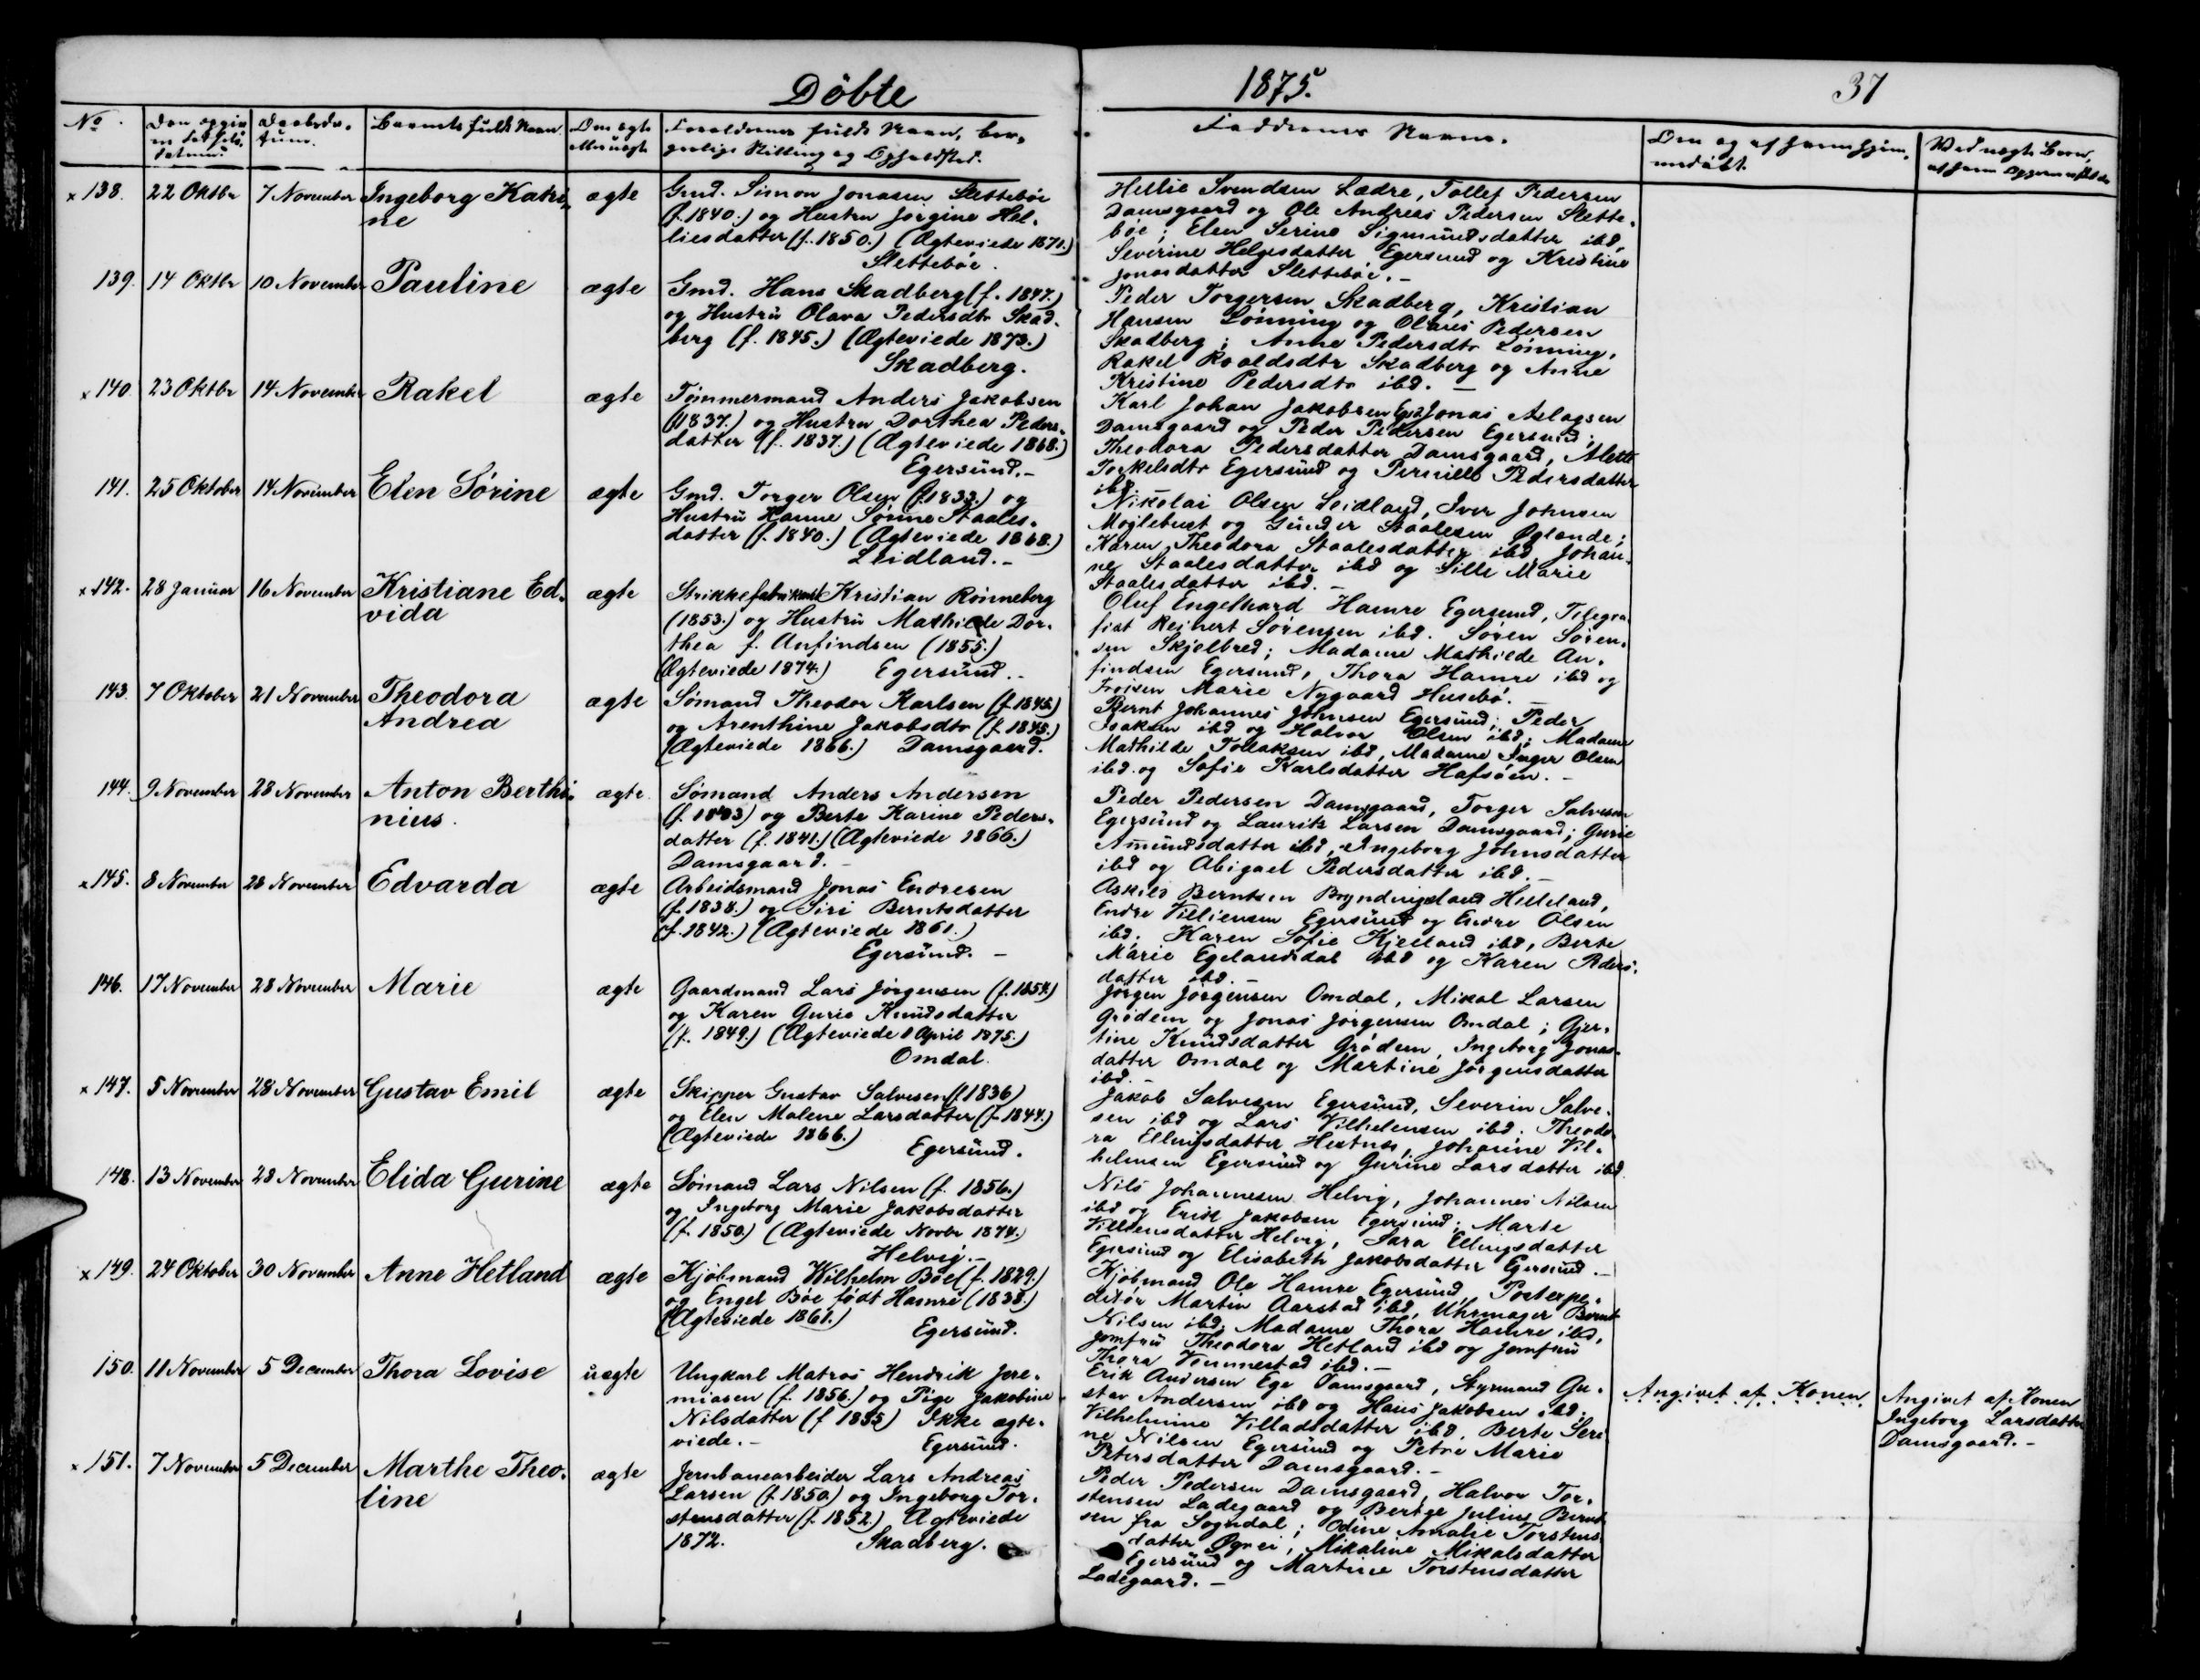 Döbte
1875.
37
No.
Barnets fulde Navn.
Om ægte
Faddernes Navne.
x 138. 22 Oktbr 7 November Ingeborg Katri-
ne
ægte
Gmd. Simon Jonasen Slettebøe
(f. 1840.) og Hustru Jorgine Hel-
liesdatter (f. 1850.) (Ægteviede 1871.)
Slettebøe.
Hellie Svendsen Lædre, Tollef Pedersen
Damsgaard og Ole Andreas Pedersen Slette-
böe; Elen Serine Sigmundsdatter ibd,
Severine Helgesdatter Egersund og Kristine
Jonasdatter Slettebøe. -
139. 14 Oktbr 10 November Pauline
ægte
Gmd. Hans Skadberg (f. 1847.)
og Hustru Olava Pedersdtr Skad-
berg (f. 1845.) (Ægteviede 1873.)
Skadberg.
Peder Torgersen Skadberg, Kristian
Hansen Lönning og Olaus Pedersen
Skadberg; Anne Pedersdtr Lönning,
Rakel Roaldsdtr Skadberg og Anne
Kristine Pedersdtr ibd. -
x 140. 23 Oktbr 14 November Rakel
ægte
Tømmermand Anders Jakobsen
(1837.) og Hustru Dorthea Peders-
datter (f. 1837.) (Ægteviede 1868.)
Egersund. -
Karl Johan Jakobsen Egsd Jonas Aslagsen
Damsgaard og Peder Pedersen Egersund.
Theodora Pedersdatter Damsgaard, Alette
Torkelsdtr Egersund og Pernille Pedersdatter
ibd. -
141. 25 Oktober 14 November Elen Sörine
ægte
Gmd. Torger Olsen (f. 1833.) og
Hustru Hanne Sörine Staales-
datter (f. 1840.) (Ægteviede 1868.)
Leidland. -
Nikolai Olsen Leidland, Iver Johnsen
Möglebust og Gunder Staalesen Øglende;
Karen Theodora Staalesdatter ibd Johan-
ne Staalesdatter ibd og Sille Marie
Staalesdatter ibd. -
x 142. 28 Januar 16 November Kristiane Ed-
vida
ægte
Kristian Rönneberg
(1853.) og Hustru Mathilde Dor-
thea f. Anfindsen (1855.)
(Ægteviede 1874.) Egersund. -
Oluf Engelhard Hamre Egersund, Telegra-
fist Reinert Sörensen ibd. Sören Sören-
sen Skjelbred; Madame Mathilde An-
findsen Egersund, Thora Hamre ibd og
Frøken Marie Nygaard Husebö. -
143. 7 Oktober 21 November Theodora
Andrea
ægte
Sömand Theodor Karlsen (f. 1845.)
og Arenthine Jakobsdtr (f. 1845.)
(Ægteviede 1866.) Damsgaard.
Bernt Johannes Johnsen Egersund; Peder
Isaksen ibd og Halvor Olsen ibd; Madame
Mathilde Tollaksen ibd, Madame Inger Olsen
ibd. og Sofie Karlsdatter Hafsöen. -
144. 9 November 28 November Anton Berthi-
nius.
ægte.
Sömand Anders Andersen
(f. 1843) og Berte Karine Peders-
datter (f. 1841.) (Ægteviede 1866.)
Damsgaard. -
Peder Pedersen Damsgaard, Torger Salvesen
Egersund og Lauritz Larsen Damsgaard; Gurie
Amundsdatter ibd, Ingeborg Johnsdatter
ibd og Abigael Pedersdatter ibd. -
x 145. 8 November 28 November Edvarda
ægte
Arbeidsmand Jonas Endresen
(f. 1838.) og Siri Berntsdatter
(f. 1842.) (Ægteviede 1861.)
Egersund. -
Askild Berntsen Bryndingsland Helleland,
Endre Villiensen Egersund og Endre Olsen
ibd. Karen Sofie Kjelland ibd, Berte
Marie Egelandsdal ibd og Karen Peders-
datter ibd. -
146. 17 November 28 November Marie
ægte
Gaardmand Lars Jörgensen (f. 1854.)
og Karen Gurie Knudsdatter
(f. 1849.) (Ægteviede 1 April 1875.)
Omdal.
Jörgen Jörgensen Omdal, Mikal Larsen
Grödem og Jonas Jörgensen Omdal; Gjer-
tine Knudsdatter Grödem, Ingeborg Jonas-
datter Omdal og Martine Jörgensdatter
ibd. -
x 147. 5 November 28 November Gustav Emil
ægte
Skipper Gustav Salvesen (f. 1836)
og Elen Malene Larsdatter (f. 1844.)
(Ægteviede 1866.)
Egersund.
Jakob Salvesen Egersund, Severin Salve-
sen ibd og Lars Vilhelmsen ibd. Theodo-
ra Ellingsdatter Hestnes, Johanne Vil-
helmsen Egersund og Gurine Larsdatter ibd.
148. 13 November 28 November Elida Gurine
ægte
Sömand Lars Nilsen (f. 1856.)
og Ingeborg Marie Jakobsdatter
(f. 1850.) (Ægteviede Novbr 1874.)
Helvig. -
Nils Johannesen Helvig, Johannes Nilsen
ibd og Erik Jakobsen Egersund; Marte
Villumsdatter Helvig, Sara Ellingsdatter
Egersund og Elisabeth Jakobsdatter Egersund. -
x 149. 24 Oktober 30 November Anne Hetland
ægte
Kjöbmand Wilhelm Böe (f. 1829.)
og Engel Böe födt Hamre (1838.)
(Ægteviede 1861.)
Egersund.
Kjöbmand Ole Hamre Egersund, Postexpe-
ditör Martin Aarstad ibd, Uhrmager Bernt
Nilsen ibd; Madame Thora Hamre ibd,
Jomfru Theodora Hetland ibd og Jomfru
Thora Vennestad ibd. -
150. 11 November 5 December Thora Lovise
uægte
Ungkarl Matros Hendrik Jere-
miasen (f. 1856.) og Pige Jakobine
Nilsdatter (f 1855) Ikke ægte-
viede. - Egersund.
Erik Andersen Ege Damsgaard, Styrmand Gu-
stav Andersen ibd og Hans Jakobsen ibd.
Vilhelmine Villadsdatter ibd, Berte Seri-
ne Nilsen Egersund og Petra Marie
Petersdatter Damsgaard. -
Angivet af Konen
Angivet af Konen
Ingeborg Larsdatter
Damsgaard. -
x 151. 7 November 5 December Marthe Theo-
line
ægte
Jernbanearbeider Lars Andreas
Larsen (f. 1850.) og Ingeborg Tor-
stensdatter (f. 1852.) Ægteviede
1872. Skadberg.
Peder Pedersen Damsgaard, Halvor Tor-
stensen Ladegaard og Bertge Julius Bernt-
sen fra Sogndal; Odine Amalie Torstens-
datter Øgrei, Mikaline Mikalsdatter
Egersund og Martine Torstensdatter
Ladegaard. -